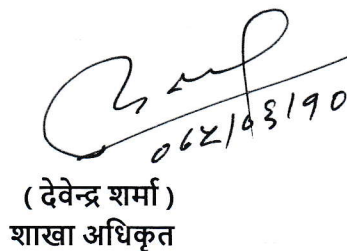 ०७८/०६/१०
( देवेन्द्र शर्मा )
शाखा अधिकृत